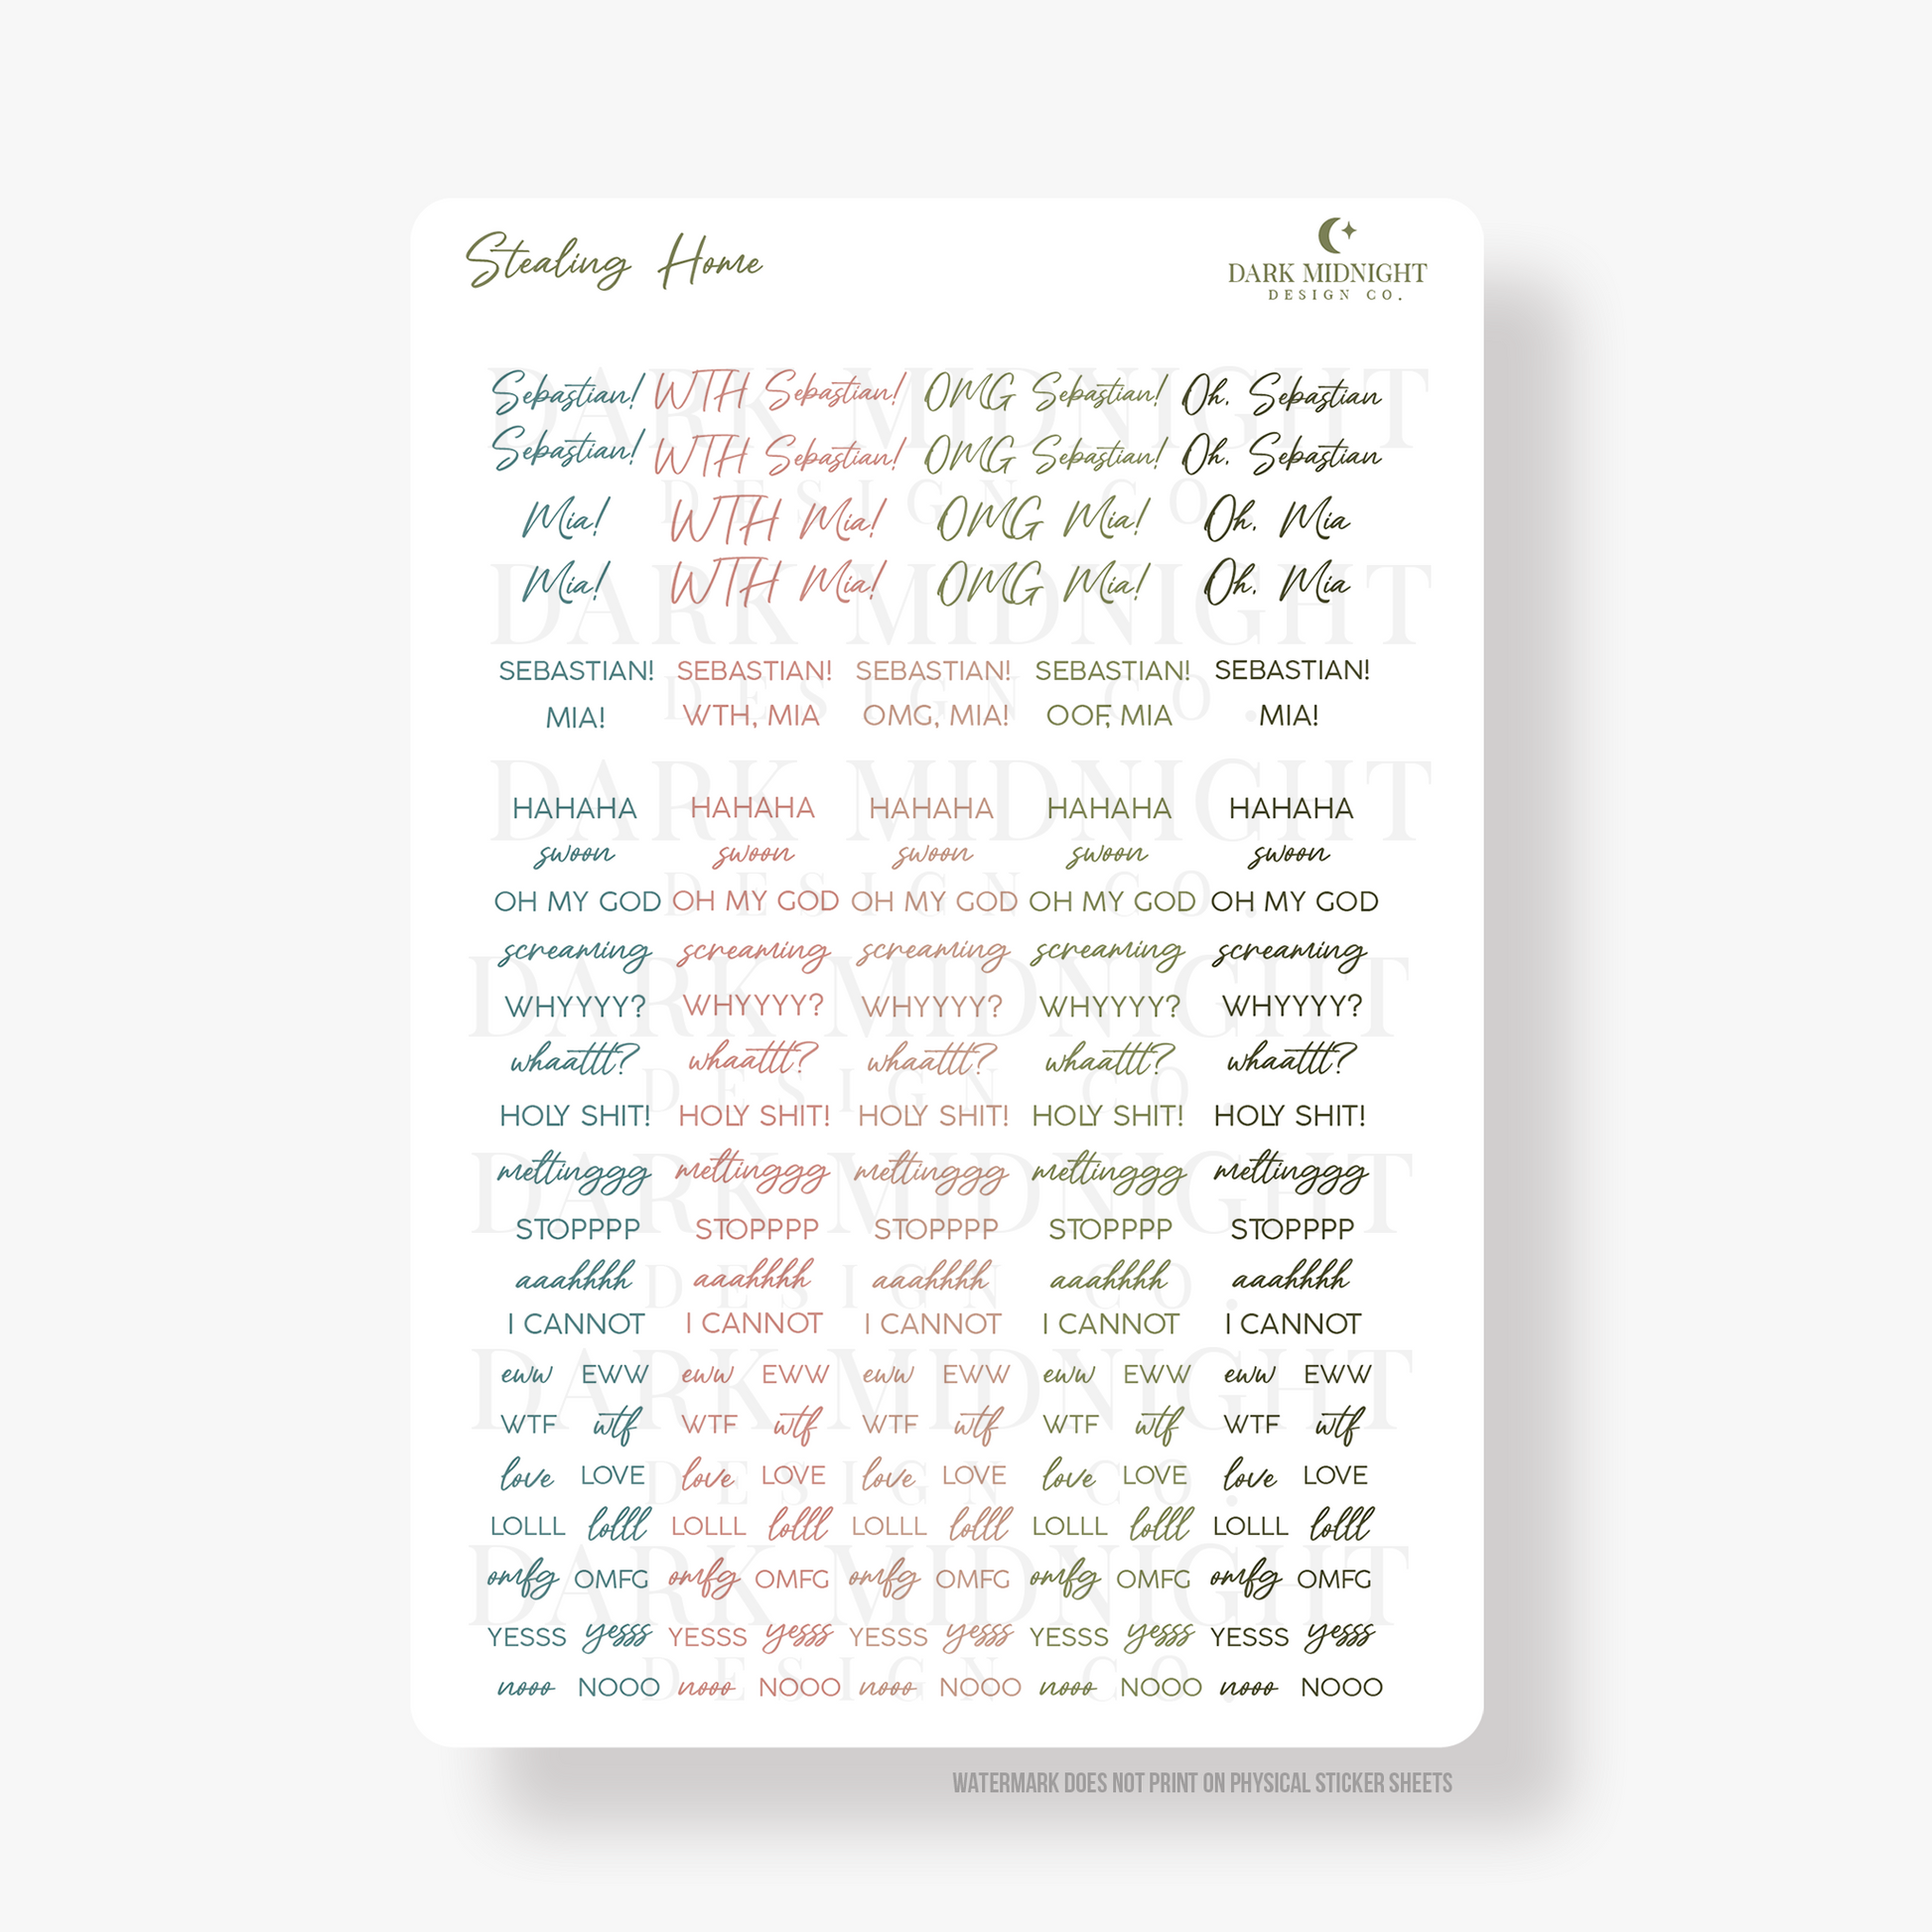 Stealing Home
DARK MIDNIGHT
DESIGN CO.
Sebastian! WTH Sebastian! OMG Sebastian! Oh, Sebastian
Sebastian! WTH Sebastian! OMG Sebastian! Oh, Sebastian
Mia! WTH Mia! OMG Mia! Oh, Mia
Mia! WTH Mia! OMG Mia! Oh, Mia
SEBASTIAN! SEBASTIAN! SEBASTIAN! SEBASTIAN! SEBASTIAN!
MIA! WTH, MIA OMG, MIA! OOF, MIA MIA!
HAHAHA HAHAHA HAHAHA HAHAHA HAHAHA
swoon swoon swoon swoon swoon
OH MY GOD OH MY GOD OH MY GOD OH MY GOD OH MY GOD
screaming screaming screaming screaming screaming
WHYYYY? WHYYYY? WHYYYY? WHYYYY? WHYYYY?
whaattt? whaattt? whaattt? whaattt? whaattt?
HOLY SHIT! HOLY SHIT! HOLY SHIT! HOLY SHIT! HOLY SHIT!
meltinggg meltinggg meltinggg meltinggg meltinggg
STOPPPP STOPPPP STOPPPP STOPPPP STOPPPP
aaahhhh aaahhhh aaahhhh aaahhhh aaahhhh
I CANNOT I CANNOT I CANNOT I CANNOT I CANNOT
eww EWW eww EWW eww EWW eww EWW eww EWW
WTF wtf WTF wtf WTF wtf WTF wtf WTF wtf
love LOVE love LOVE love LOVE love LOVE love LOVE
LOLLL lolll LOLLL lolll LOLLL lolll LOLLL lolll LOLLL lolll
omfg OMFG omfg OMFG omfg OMFG omfg OMFG omfg OMFG
YESSS yesss YESSS yesss YESSS yesss YESSS yesss YESSS yesss
nooo NOOO nooo NOOO nooo NOOO nooo NOOO nooo NOOO
DARK MIDNIGHT
DESIGN CO.
DARK MIDNIGHT
DESIGN CO.
DARK MIDNIGHT
DESIGN CO.
DARK MIDNIGHT
DESIGN CO.
DARK MIDNIGHT
DESIGN CO.
DARK MIDNIGHT
DESIGN CO.
DARK MIDNIGHT
DESIGN CO.
WATERMARK DOES NOT PRINT ON PHYSICAL STICKER SHEETS